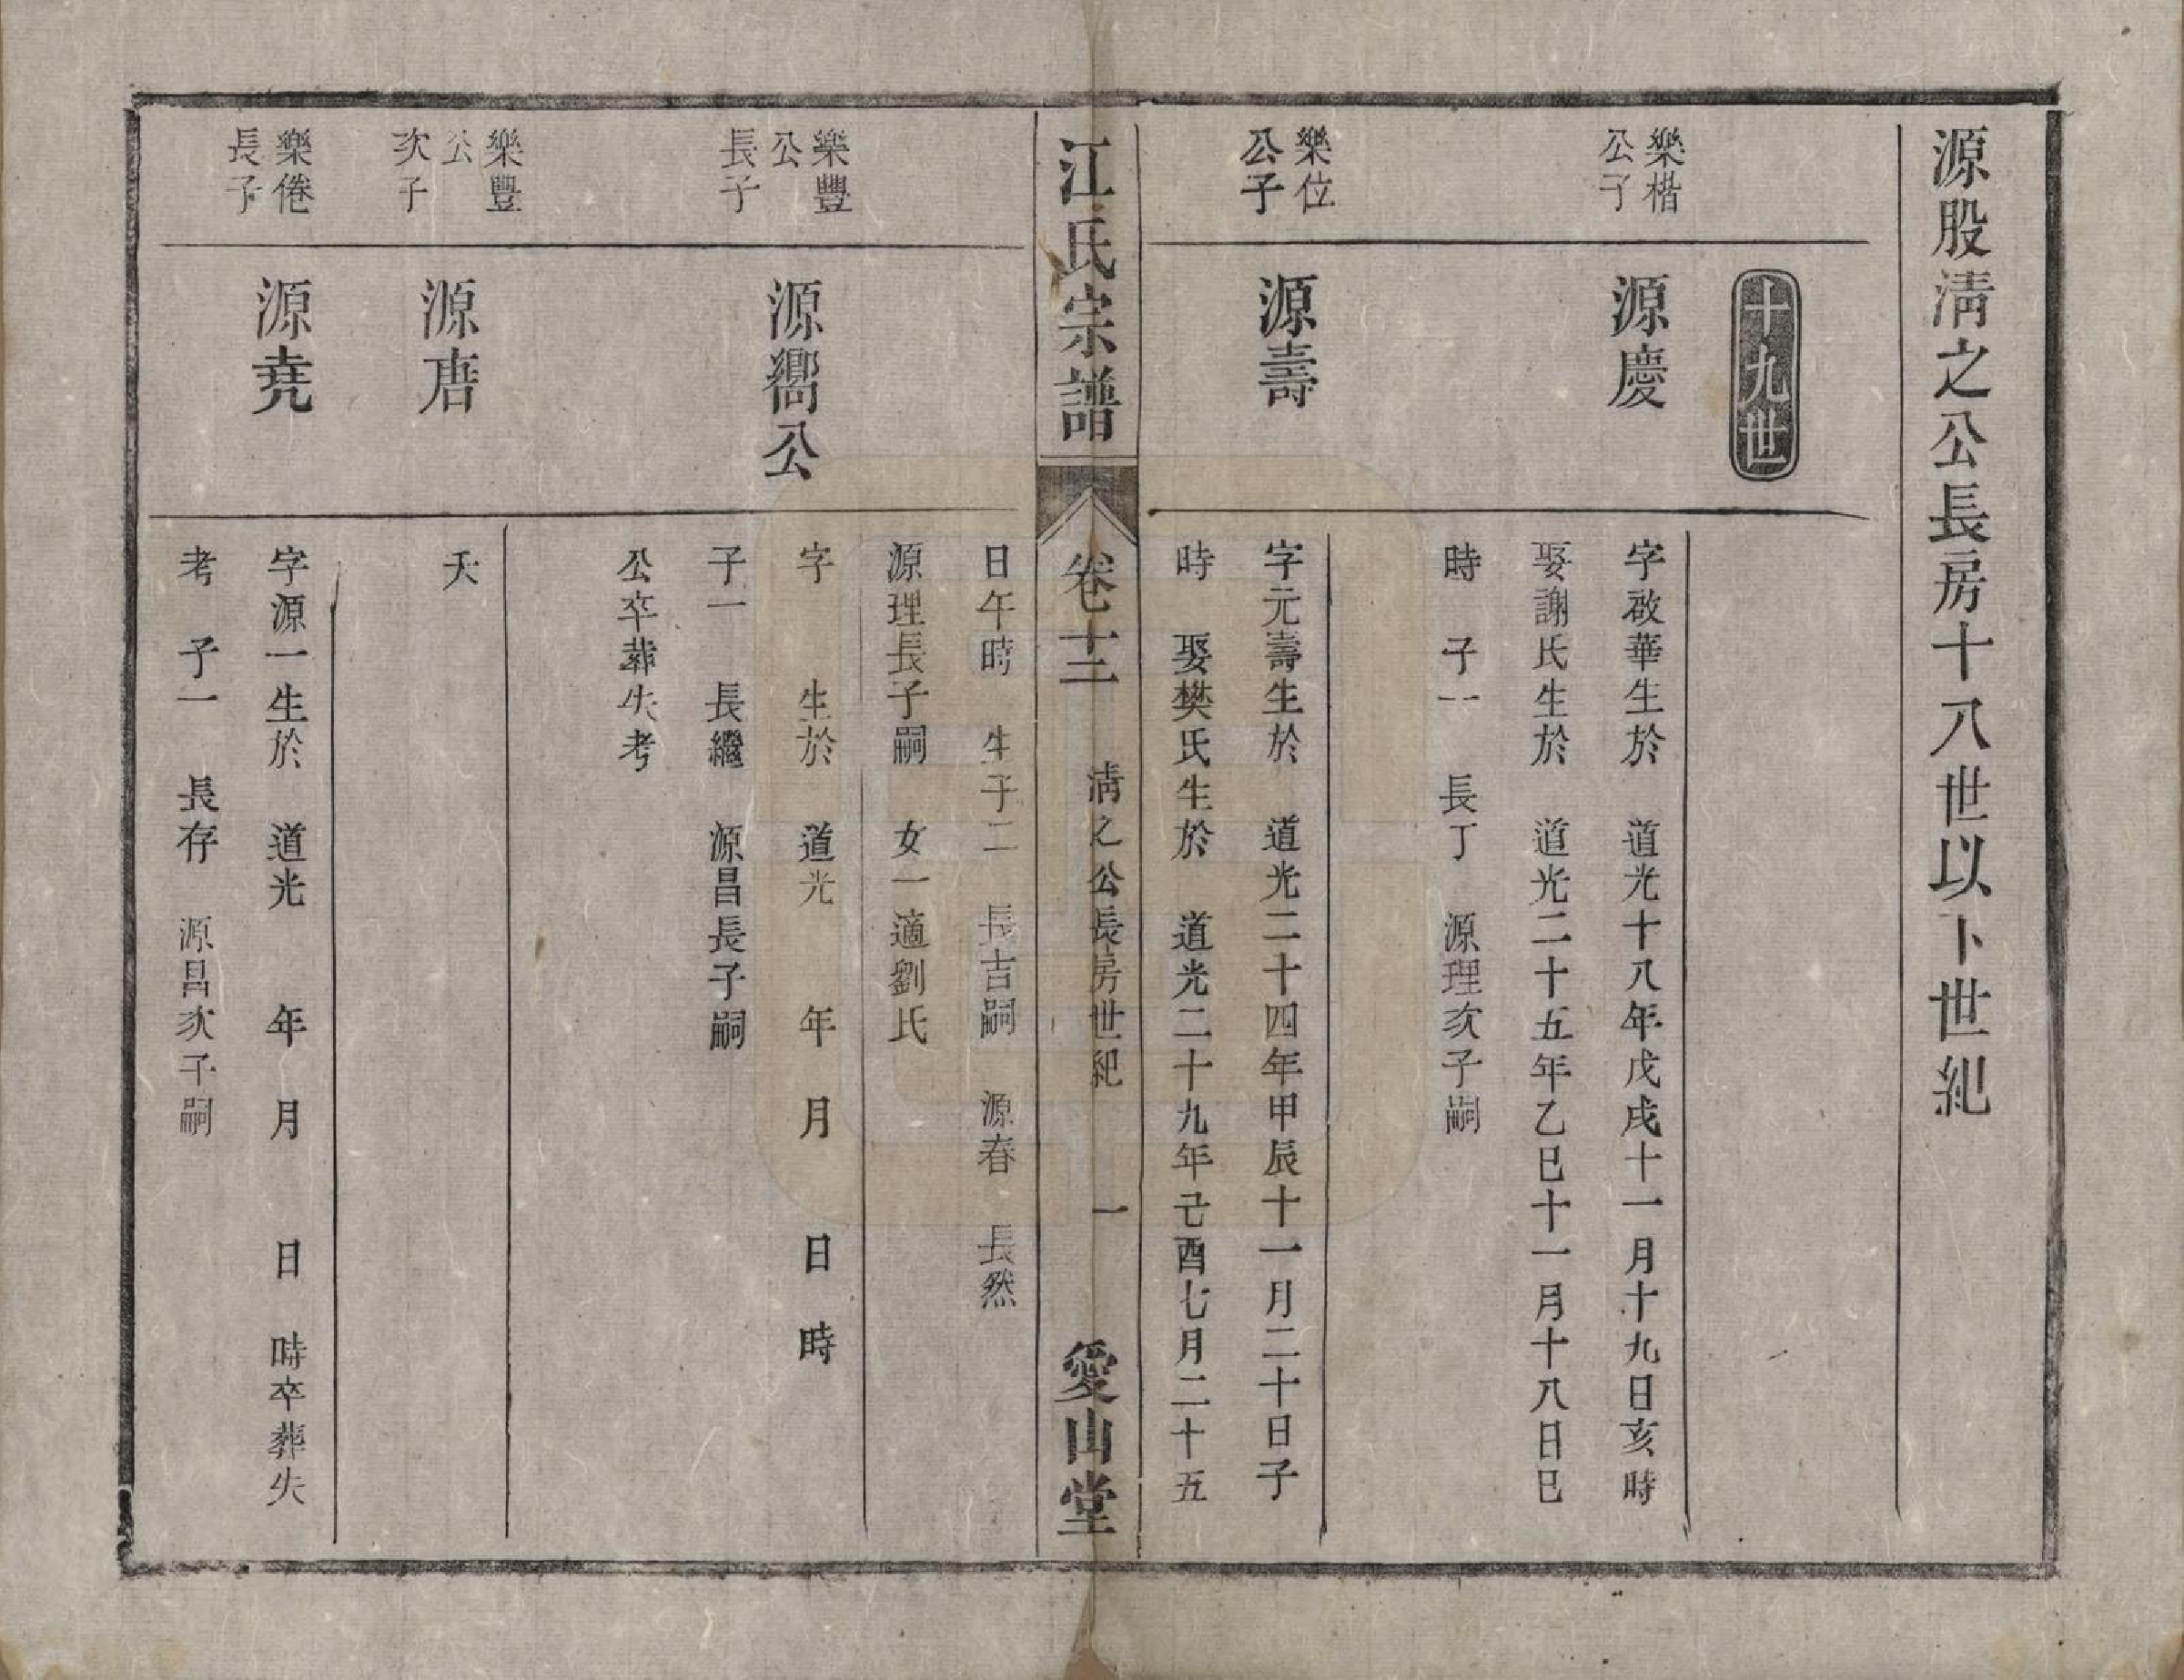 源股清之公長房十八世以下世紀
十九世
樂楷
公子
源慶
字啟華生於　道光十八年戊戌十一月十九日亥時
娶謝氏生於　道光二十五年乙巳十一月十八日巳
時　子一　長丁　源理次子嗣
樂位
公子
源壽
字元壽生於　道光二十四年甲辰十一月二十日子
時　娶樊氏生於　道光二十九年己酉七月二十五
江氏宗譜　卷十二　清之公長房世紀　一　愛山堂
日午時　生子二　長吉嗣　源春　長然
源理長子嗣　女一適劉氏
樂豐
公
長子
源嚮公
字　生於　道光　年　月　日　時
子一　長繼　源昌長子嗣
公卒葬失考
樂豐
公
次子
源唐
夭
樂倦
長子
源堯
字源一生於　道光　年　月　日　時卒葬失
考　子一　長存　源昌次子嗣